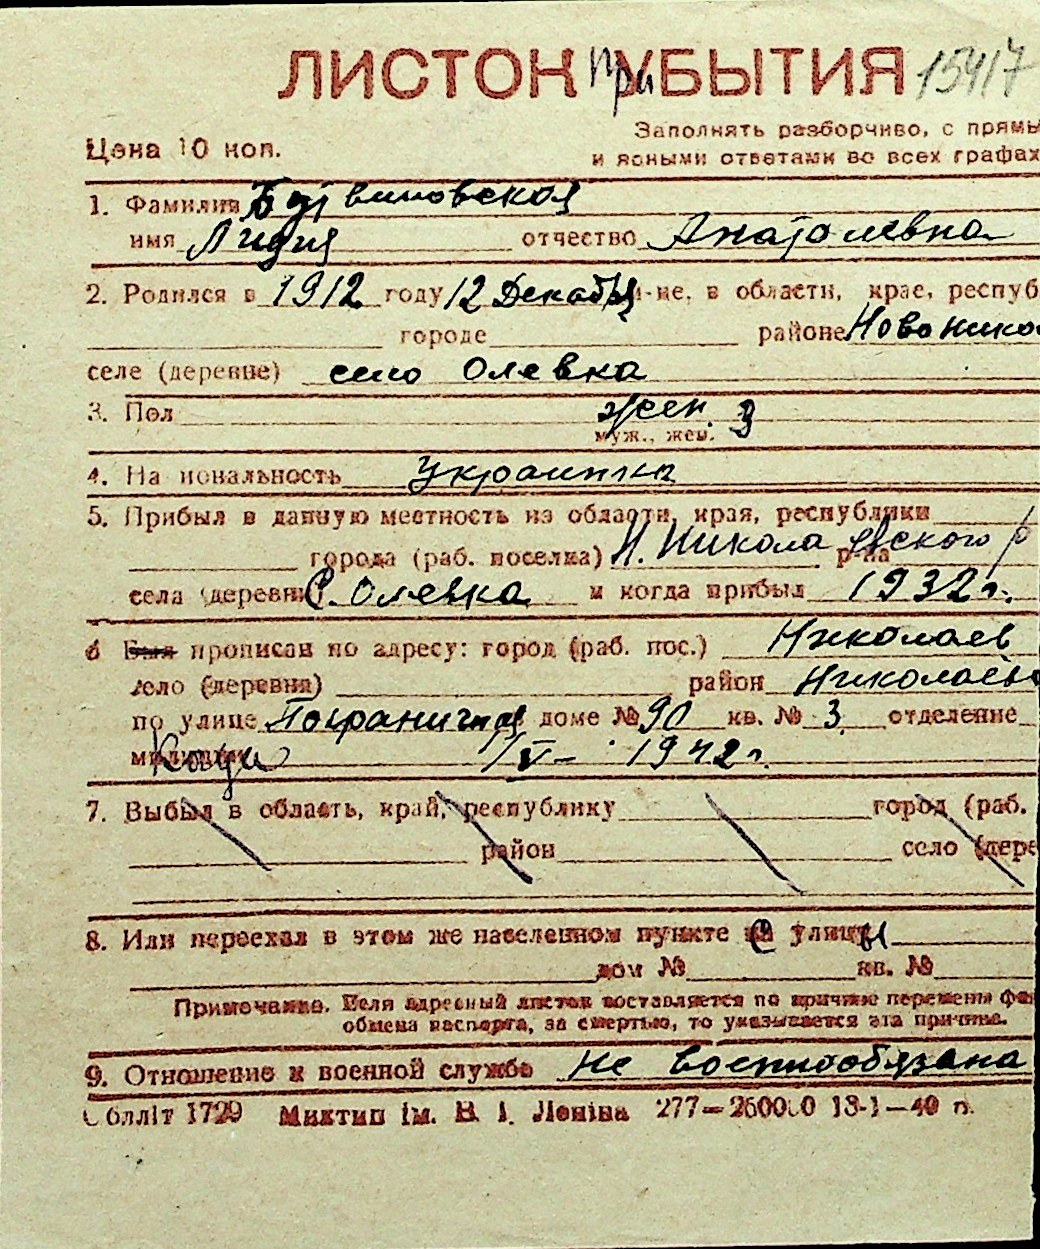 ЛИСТОК при УБЫТИЯ 15417
Цена 10 коп.
Заполнять разборчиво, с прямы
и ясными ответами во всех графах
1. Фамилия
имя Лидия отчество Анатолевна
2. Родился в 1912 году 12 Декабря м-це, в области, крае, респуб
городе районе Новонико
селе (деревне) село Олевка
3. Пол жен. 3
муж., жен.
4. На иональность Украинка
5. Прибыл в данную местность из области, края, республики
города (раб. поселка) Н. Николаевского р р-на
села (деревни) С. Олевка и когда прибыл 1932 г.
6 Был прописан по адресу: город (раб. пос.) Николаев
село (деревня) район Николаевс
по улице Пограничная доме № 90 кв. № 3 отделение
милиции 1/V- 1942 г.
7. Выбыл в область, край, республику город (раб.
район село (дере
8. Или переехал в этом же населенном пункте с улицы
дом № кв. №
Примечание. Если адресный листок составляется по причине перемены фам
обмена паспорта, за смертью, то указывается эта причина.
9. Отношение к военной службе не военнообязана
Облліт 1729 Миктип ім. В. І. Леніна 277—250000 13-1—40 г.